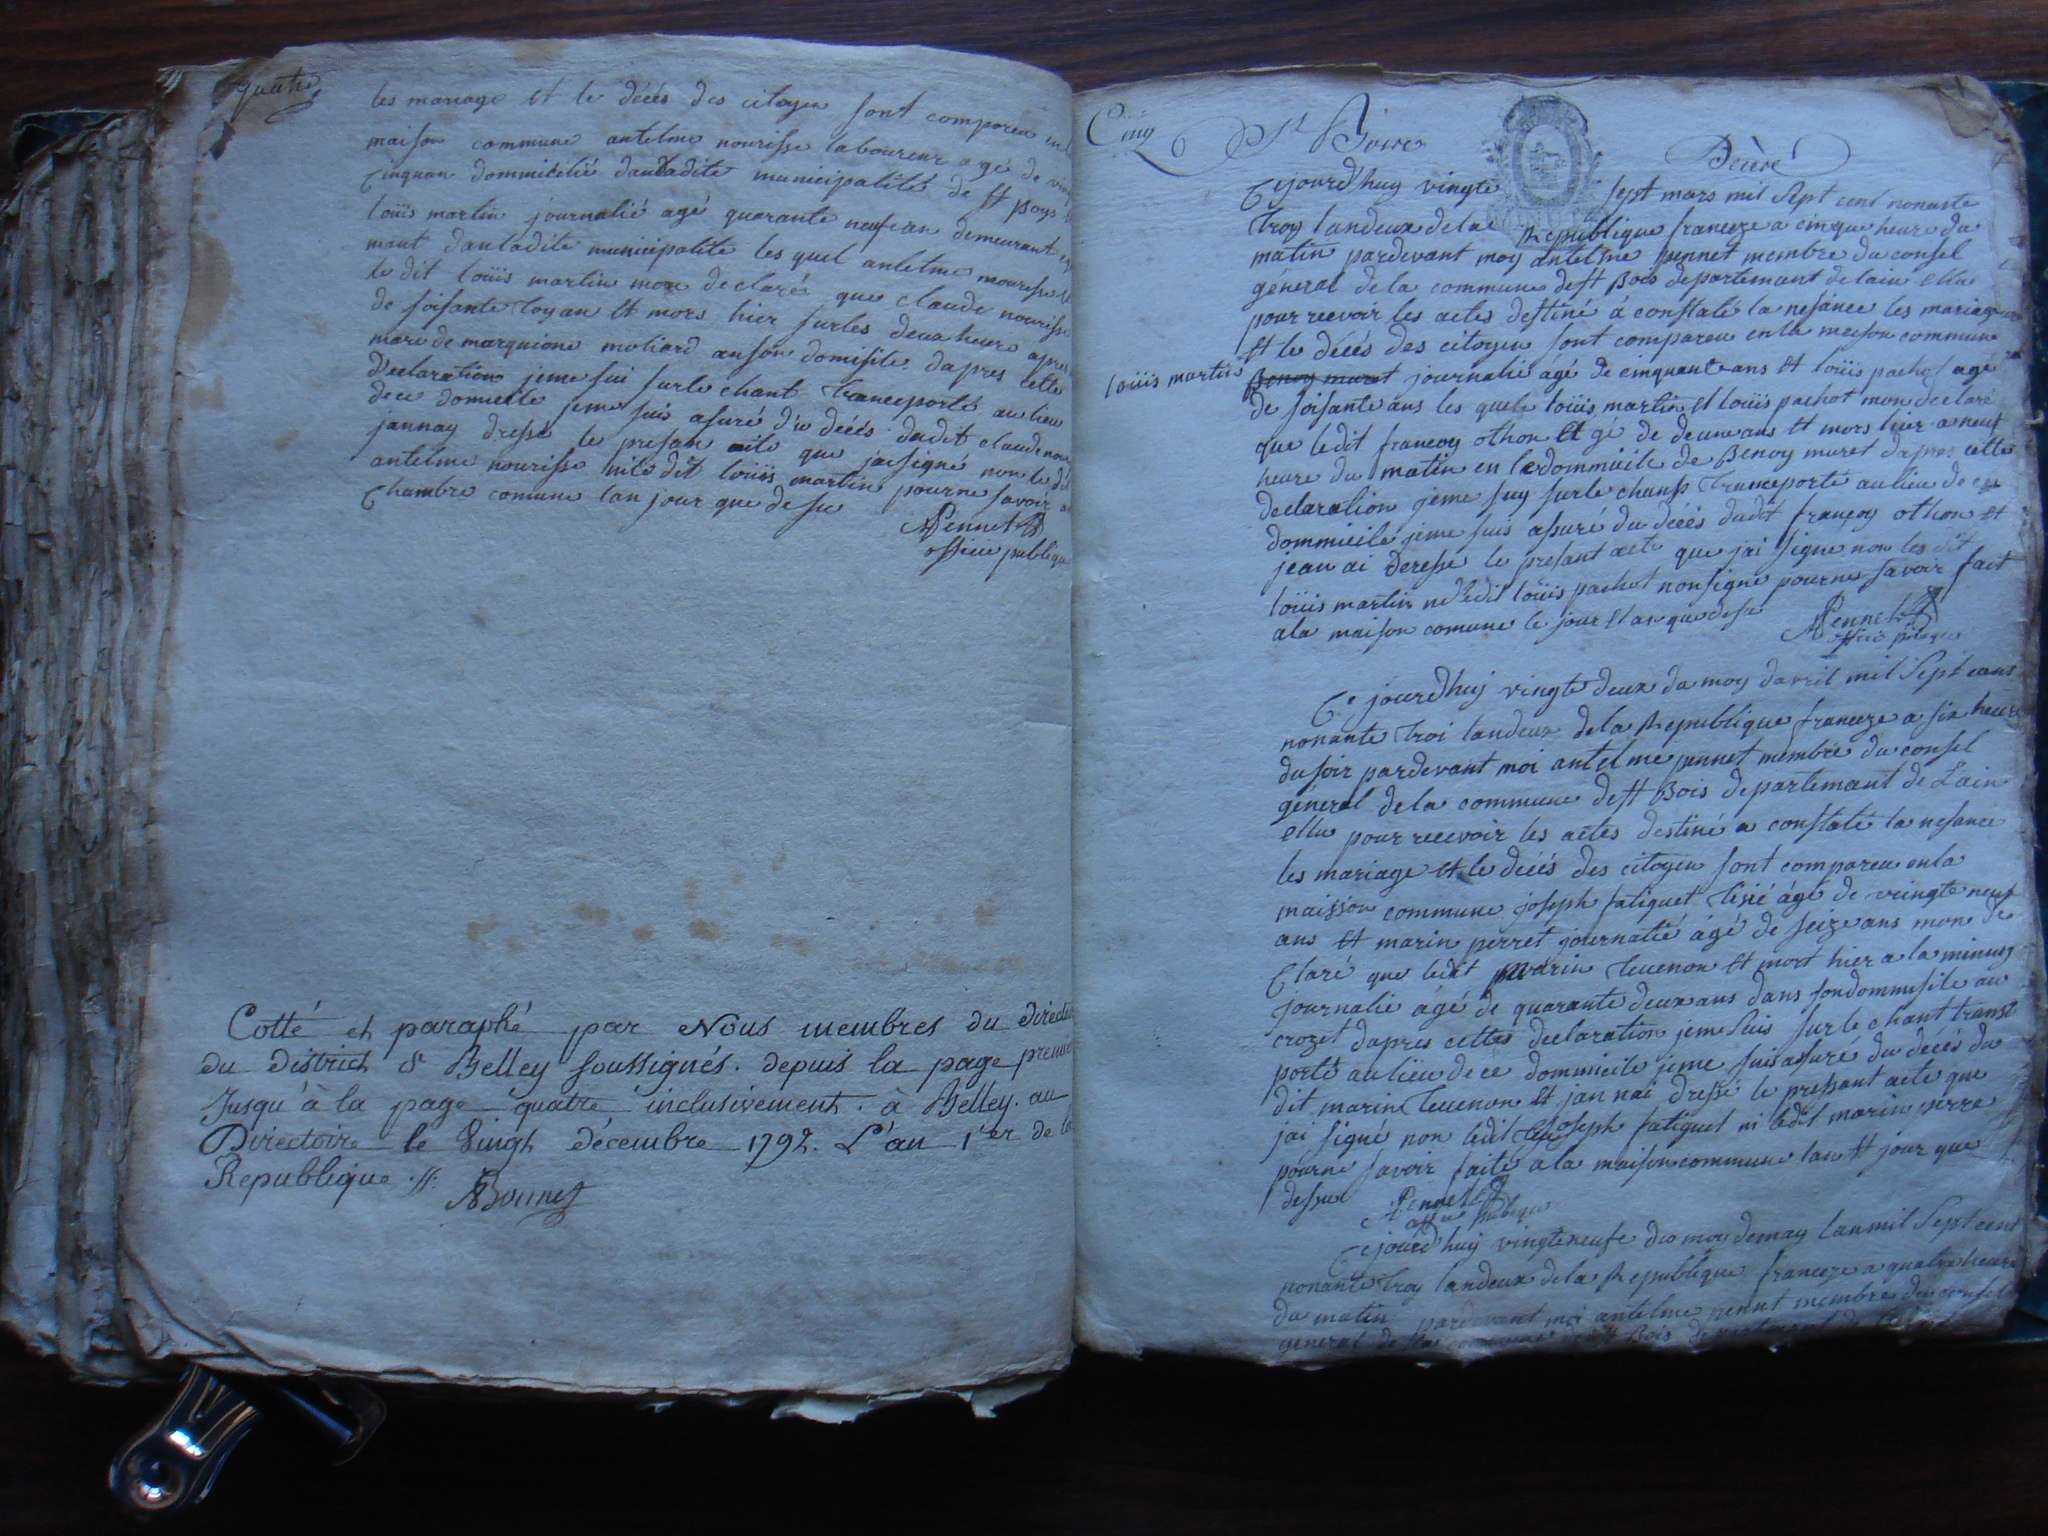 quatre
les mariage et le décés des citoyen sont comparen en
maison commune antelme nourisse laboureur agé de
cinquan dommicilié dantadite municipalité de st boys
loüis martin journalié agé quarante neuf an demeurant
mant dantadite municipalité les quel antelme nourisse
le dit loüis martin mon declaré que claude nourisse
de soisante troy an et mors hier sur les deux heure apres
mare de marquione moliard an son domisile dapres cette
declaration jeme sui sur le chant transporté au lieu
de ce domicile jeme suis asuré du décés dudit claude nou
jannay dressé le presan acte que jai signé non le di
antelme nourisse ni le dit loüis martin pour ne savoir
chambre comune lan jour que desu
APennet
offisie publique
Cotté et paraphé par Nous membres du Direct
du District de Belley soussignés. depuis la page premie
Jusqu'à la page quatre inclusivement. à Belley. au
Directoire le Vingt décembre 1792. L'an 1er de la
Republique
Bonnet
Cinq St Boire Décès
Cejourd'huy vingte sept mars mil sept cent nonante
troy landeux de la Republique franceze a cinque heure du
matin pardevant moy antelme pennet membre du consel
général de la commune de st Bois departemant de lain ellu
pour recevoir les actes destiné á constaté la nesance les mariage
et le décés des citoyen sont comparen en la meson commune
loüis martin Benoy muret journalié ágé de cinquante ans et loüis pachot agé
de soisante ans les quele loüis martin et loüis pachot mon declaré
que ledit françoy othon et gé de deux ans et mors hier a neuf
heure du matin en le dommicile de Benoy muret dapres cette
declaration jeme suy sur le chanp transporté au lieu de ce
dommicile jeme suis asuré du décés dudit françoy othon et
jean ai deressé le presant acte que jai signe non les dit
loüis martin ni ledit loüis pachot non signé pour ne savoir fait
a la maison comune le jour et an que desu
APennet
offisié publique
Ce jourdhuy vingte deux du moy davril mil sept cans
nonante troi landeux de la Republique franceze a six heure
du soir pardevant moi antelme pennet membre du consel
géneral de la commune de st Bois departemant de Lain
ellu pour recevoir les actes destiné a constaté la nesance
les mariage et le décés des citoyen sont comparen en la
maisson commune joseph fatiguet tisié ágé de vingte neuf
ans et marin perret journalié ágé de seize ans mon de
claré que ledit marin tevenon et mort hier a la minuy
journalié ágé de quarante deux ans dans son dommisile au
crozet dapres cettes declaration jeme suis sur le chant trans
porté au lieu de ce dommicile jeme suis assuré du decés du
dit marin tevenon et jan nai dressé le pressant acte que
jai signé non ledit joseph fatiguet ni ledit marin perre
pour ne savoir faite a la maison commune lan et jour que
dessu
APennet
offisié publique
Cejourd'huy vingte neufe du moy de may lan mil sept cent
nonante troy landeux de la Republique franceze a quatre heure
du matin pardevant moi antelme pennet membre du consel
general de la commune de st Bois departemant de